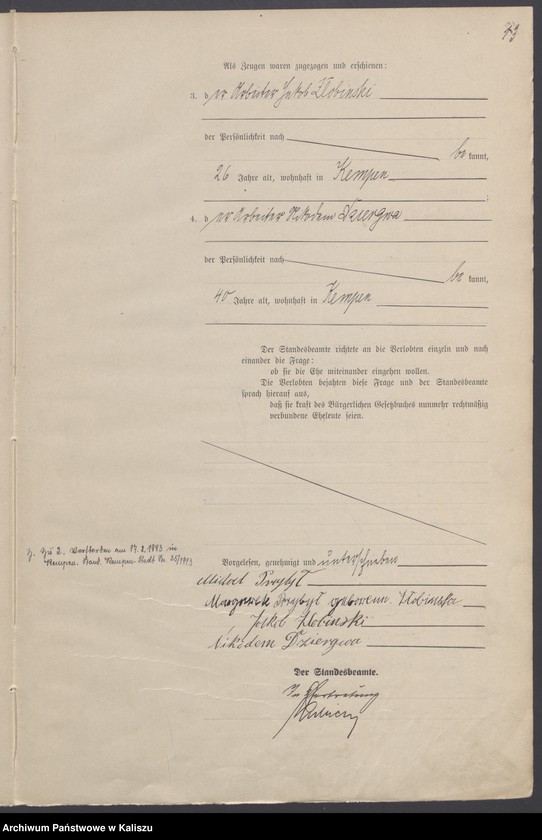 Als Zeugen waren zugezogen und erschienen:
3. der Arbeiter Jakob Zlobinski
der Persönlichkeit nach
bekannt,
26 Jahre alt, wohnhaft in Kempen
;
4. der Arbeiter Nikodem Dziergwa
der Persönlichkeit nach
bekannt,
40 Jahre alt, wohnhaft in Kempen
Der Standesbeamte richtete an die Verlobten einzeln und nach
einander die Frage:
ob sie die Ehe miteinander eingehen wollen.
Die Verlobten bejahten diese Frage und der Standesbeamte
sprach hierauf aus,
daß sie kraft des Bürgerlichen Gesetzbuches nunmehr rechtmäßig
verbundene Eheleute seien.
Zu 2. Verstorben am 17.2.1943 in
Kempen. Stand. Kempen-Stadt Nr. 25/1943
Vorgelesen, genehmigt und unterschrieben
Michael Przybył
Przybył geborene Zlobinska
Jakob Zlobinski
Nikodem Dziergwa
Der Standesbeamte.
In Vertretung
Archiwum Państwowe w Kaliszu